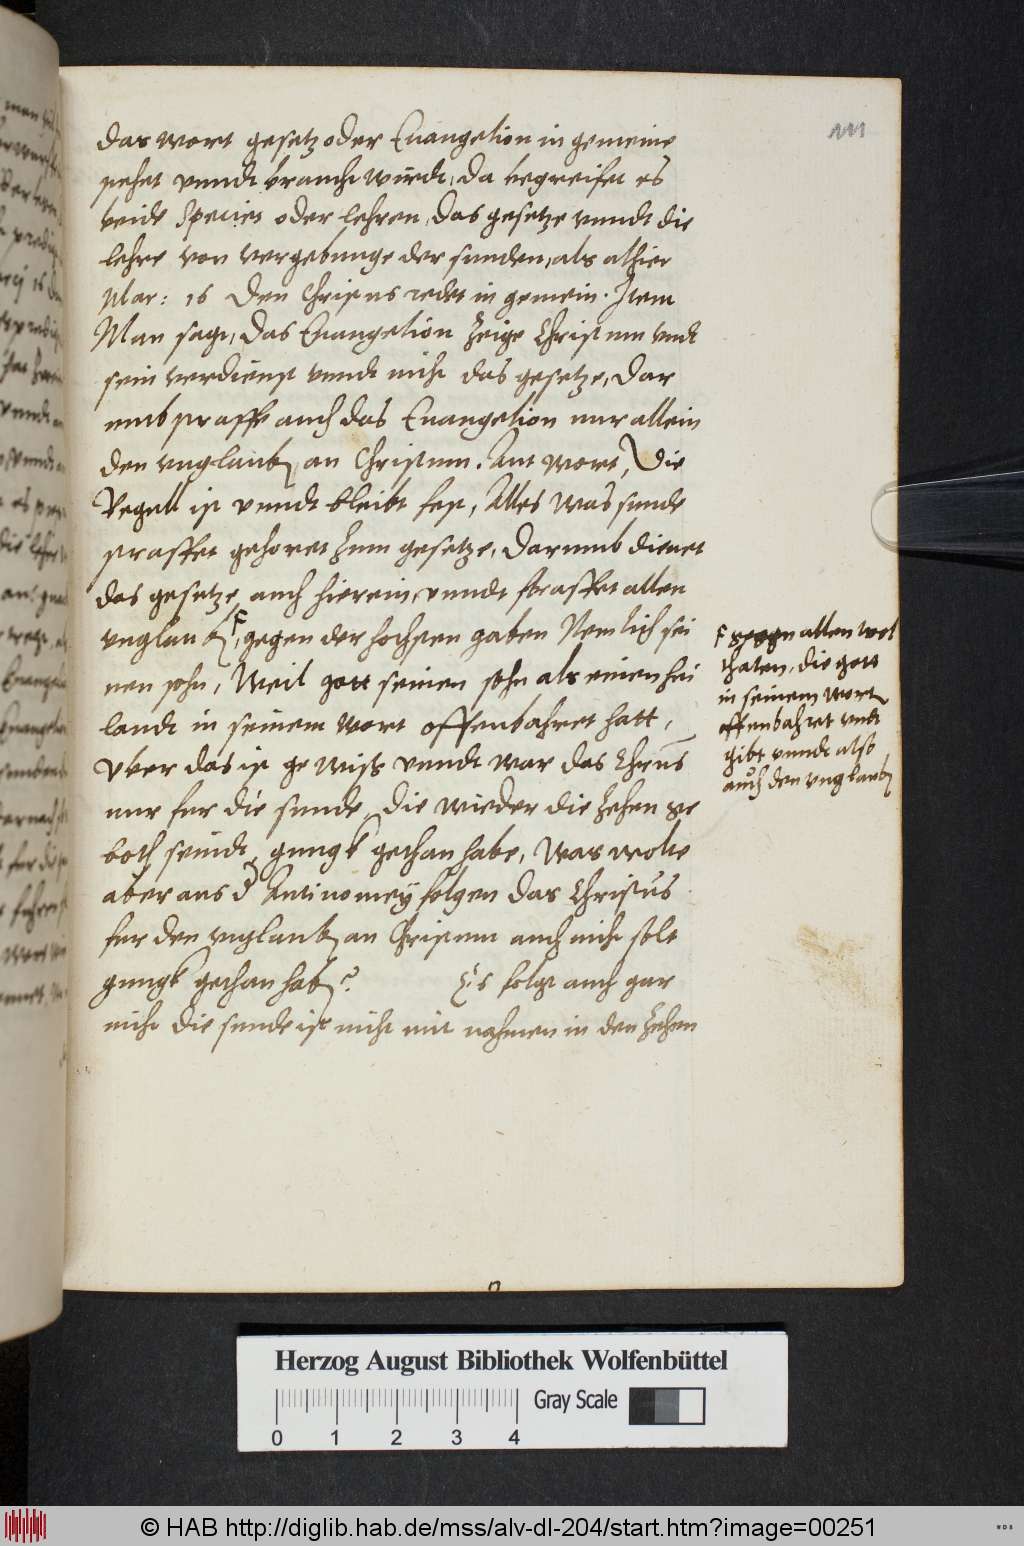 111
das wort gesetz oder Euangelion in gemeine
stehet vnndt braucht wirdt, da begreifet es
beide Species oder lehren, das gesetze vnndt die
lehre von vergebunge der sunden, als alhier
Mar: 16 Den Christus redet in gemein. Item
Man sagt, das Euangelion zeige Christum vndt
sein verdienst vnndt nicht das gesetze, Dar
umb straffe auch das Euangelion nur allein
den vnglauben an Christum. Antwort, Die
Regell ist vnndt bleibt fest, Alles was sunde
straffet gehoret zum gesetze, Darumb dienet
das gesetze auch hierein, vnndt straffet allen
vnglauben, gegen der hochsten gaben Nemlich sei
nen sohn, Weil gott seinen sohn als einen hei
landt in seinem wort offenbahret hatt,
Vber das ist gewiss vnndt war das Christus
nur fur die sunde, die wieder die zehen ge
both seindt, gnugk gethan habe, Was wolte
aber aus d Antinomey folgen das Christus
fur den vnglauben an Christum auch nicht solt
gnugk gethan haben? Es folgt auch gar
nicht die sunde ist nicht mit nahmen in den zehen
gegen allen wol
thaten, die gott
in seinem wort
offenbahret vndt
gibt vnndt also
auch den vnglauben
Herzog August Bibliothek Wolfenbüttel
Gray Scale
0 1 2 3 4
© HAB http://diglib.hab.de/mss/alv-dl-204/start.htm?image=00251